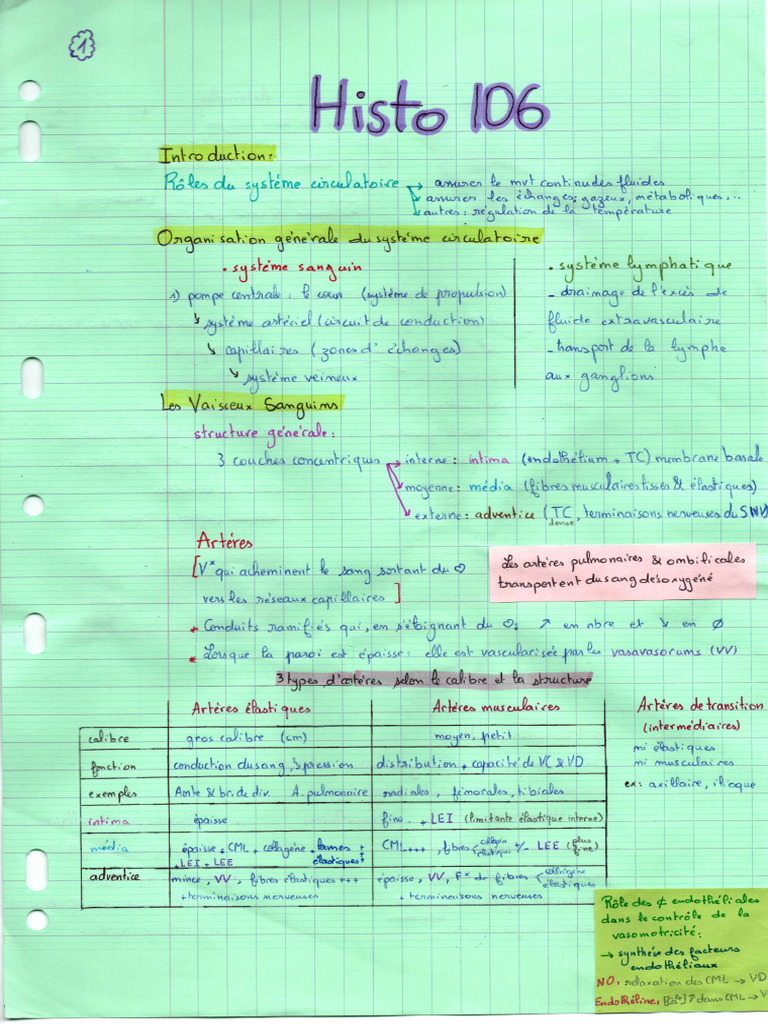 1
Histo 106
Introduction:
Rôles du système circulatoire → assurer le mvt continu des fluides
→ assurer les échanges: gazeux, métaboliques,...
→ autres: régulation de la température
Organisation générale du système circulatoire
• système sanguin
1) pompe centrale: le cœur (système de propulsion)
↳ système artériel (circuit de conduction)
↳ capillaires (zones d'échanges)
↳ système veineux
• système lymphatique
- drainage de l'excès de
fluide extravasculaire
- transport de la lymphe
aux ganglions
Les Vaisseux Sanguins
structure générale:
3 couches concentriques → interne: intima (endothélium + TC) membrane basale
→ moyenne: média (fibres musculaires lisses & élastiques)
→ externe: adventice (TC dense, terminaisons nerveuses du SNV
Artères
[Vx qui acheminent le sang sortant du ♡
vers les réseaux capillaires]
Les artères pulmonaires & ombilicales
transportent du sang désoxygéné
* Conduits ramifiés qui, en s'éloignant du ♡, ↗ en nbre et ↘ en ∅
* Lorsque la paroi est épaisse: elle est vascularisée par les vasavasorums (VV)
3 types d'artères selon le calibre et la structure
Artères élastiques | Artères musculaires
calibre | gros calibre (cm) | moyen, petit
fonction | conduction du sang, pression | distribution + capacité de VC & VD
exemples | Aorte & br. de div. A. pulmonaire | radiales, fémorales, tibiales
intima | épaisse | fine + LEI (limitante élastique interne)
média | épaisse + CML + collagène + lames élastiques +++ + LEI + LEE | CML+++, fibres collagène élastique +/- LEE (plus fine)
adventice | mince, VV, fibres élastiques +++ + terminaisons nerveuses | épaisse, VV, Fx de fibres collagène élastiques + terminaisons nerveuses
Artères de transition
(intermédiaires)
mi élastiques
mi musculaires
ex: axillaire, iliaque
Rôle des ¢ endothéliales
dans le contrôle de la
vasomotricité:
→ synthèse des facteurs
endothéliaux
NO: relaxation des CML → VD
Endothéline: [Ca2+] ↑ dans CML → V